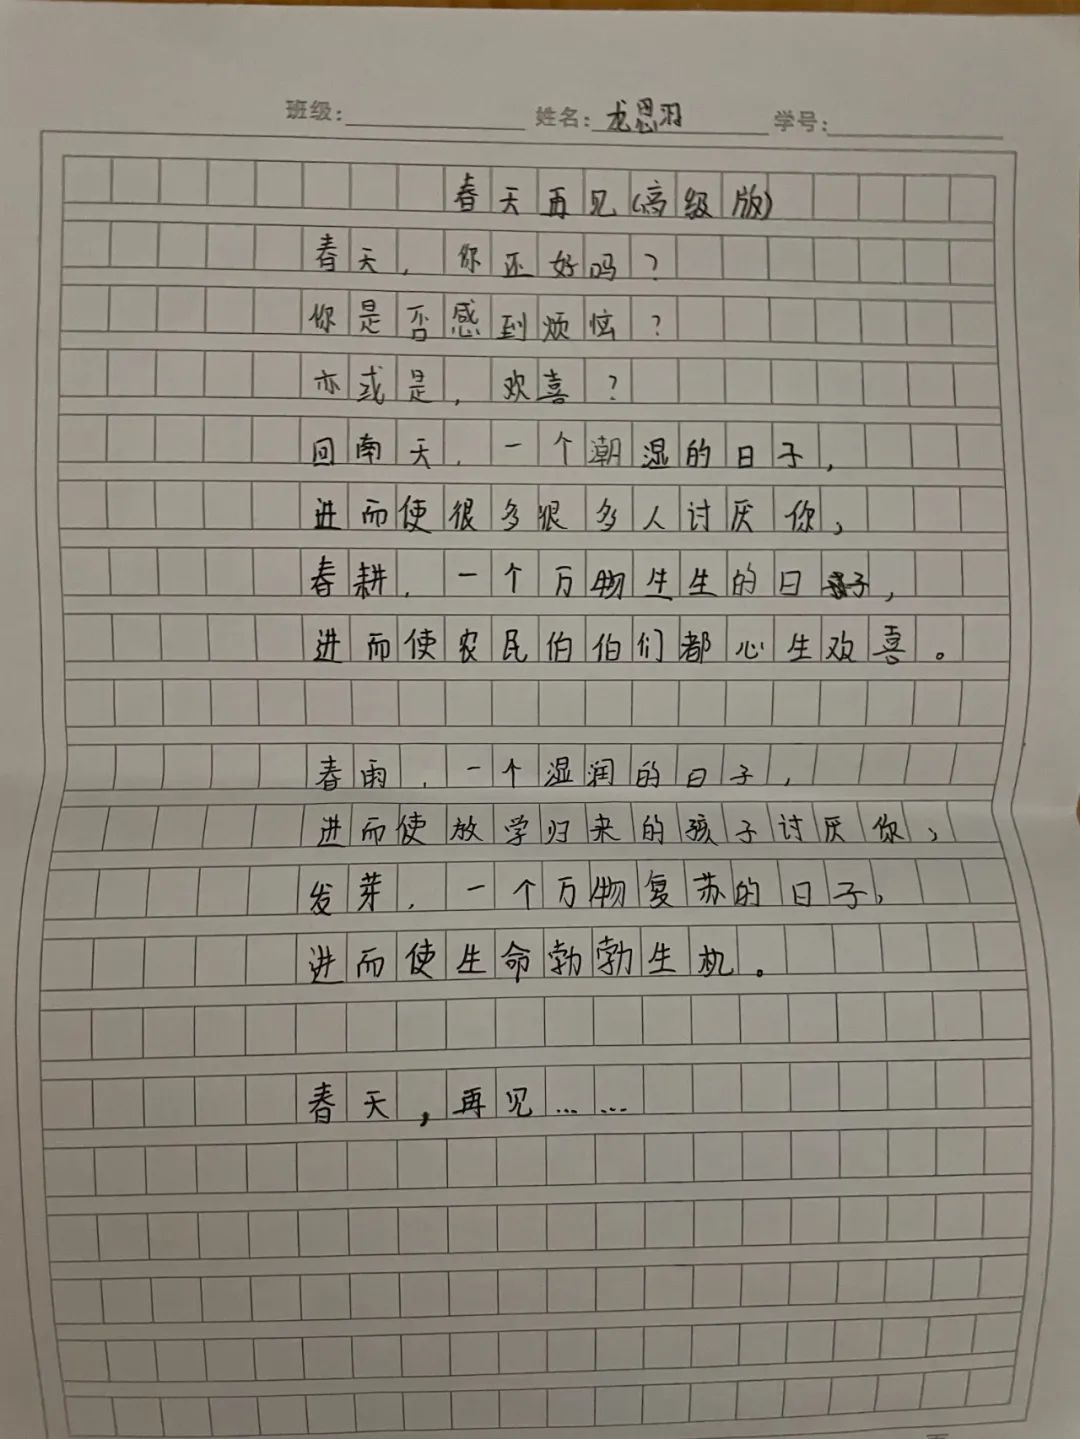 班级： 姓名：龙恩羽 学号：
春天再见(高级版)
春天，你还好吗？
你是否感到烦恼？
亦或是，欢喜？
回南天，一个潮湿的日子，
进而使很多很多人讨厌你，
春耕，一个万物生生的日子，
进而使农民伯伯们都心生欢喜。
春雨，一个湿润的日子，
进而使放学归来的孩子讨厌你，
发芽，一个万物复苏的日子，
进而使生命勃勃生机。
春天，再见……